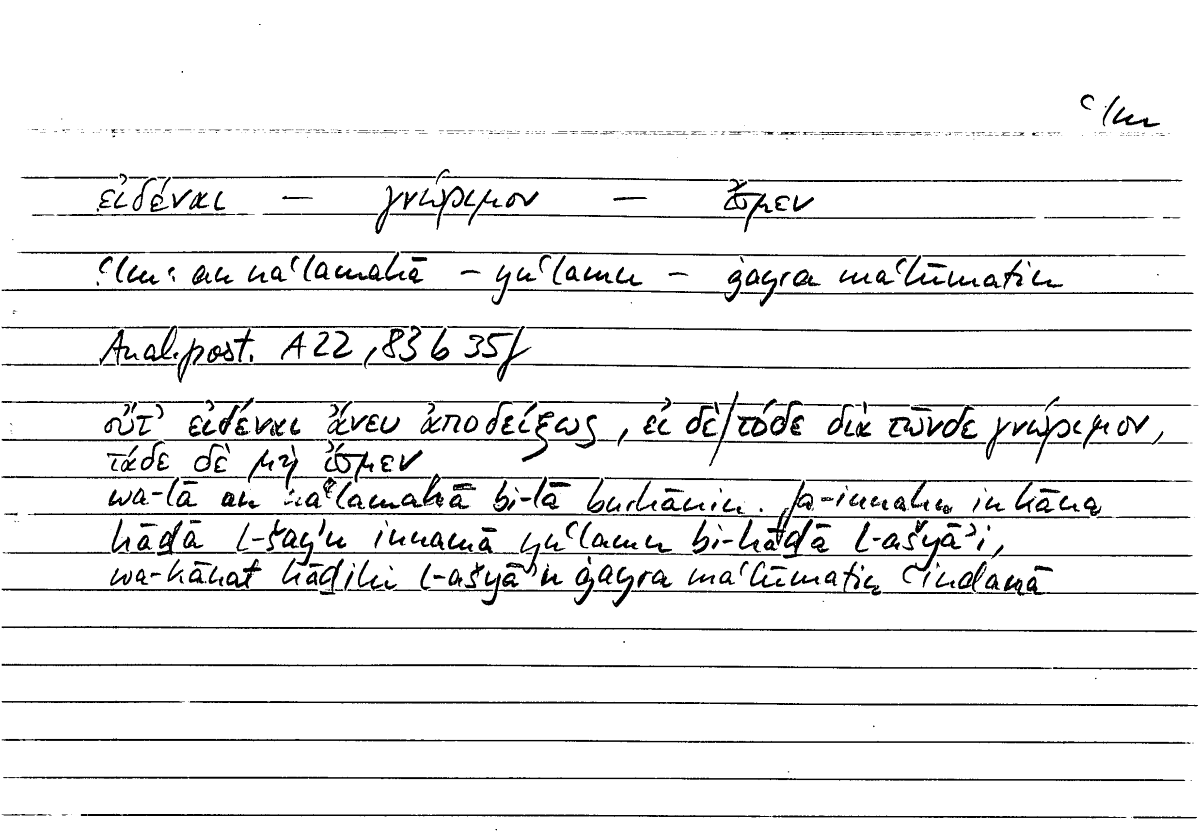 ʿlm
εἰδέναι — γνώριμον — ἴσμεν
ʿlm: an naʿlamahā – yuʿlamu – ġayra maʿlūmatin
Anal.post. A 22, 83 b 35f
οὔτ᾽ εἰδέναι ἄνευ ἀποδείξεως, εἰ δὲ/τόδε διὰ τῶνδε γνώριμον,
τάδε δὲ μὴ ἴσμεν
wa-lā an naʿlamahā bi-lā burhānin. fa-innahu in kāna
hāḏā l-šayʾu innamā yuʿlamu bi-hāḏā l-ašyāʾi,
wa-kānat hāḏihi l-ašyāʾu ġayra maʿlūmatin ʿindanā